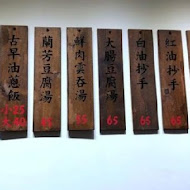 紅油抄手
65
白油抄手
65
大腸豆腐湯
65
鮮肉雲吞湯
65
蘭芳豆腐湯
65
古早油蔥飯